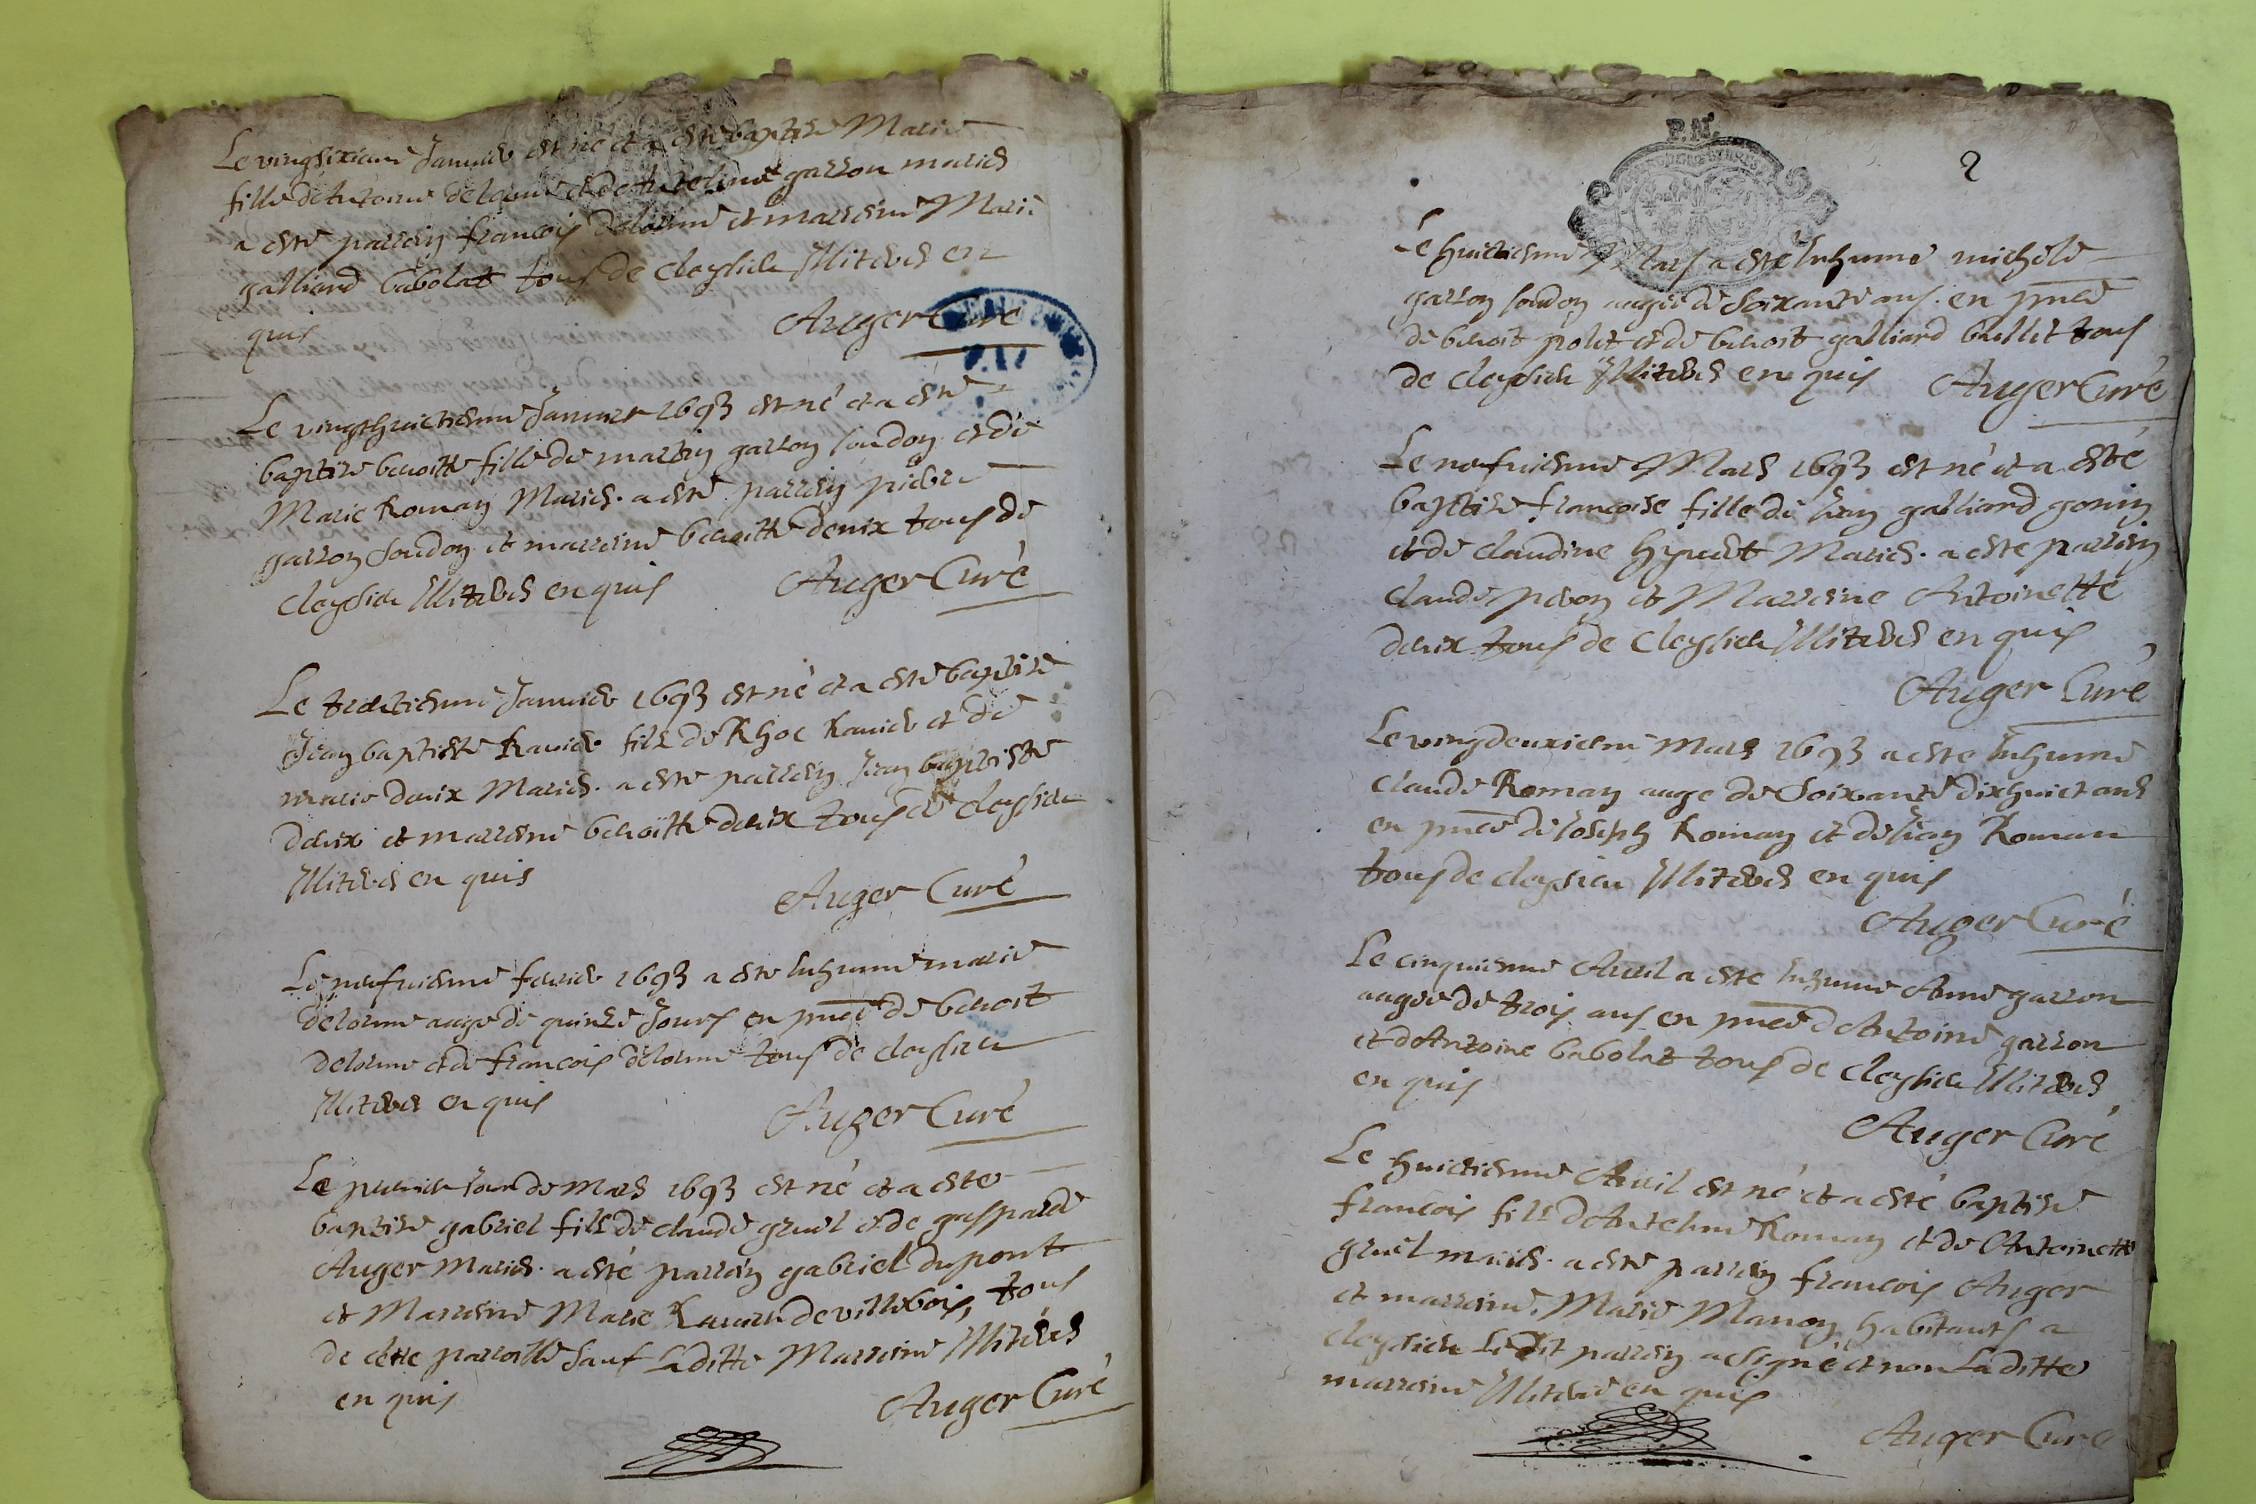 Le vingsixieme Janvier est né et a esté baptisée Marie
fille de Antoine delorme et de Anthelmette garron mariés
a esté parrain françois delorme et marreine Marie
galliard babolat tous de cleysieu Illiterés en
quis Auger Curé
Le vingthuictieme Janvier 1693 est né et a esté
baptisée benoitte fille de martin garron soudon et de
Marie Roman Mariés. a esté parrain pierre
garron soudon et marreine benoitte denix tous de
cleysieu Illiterés enquis Auger Curé
Le trentieme Janvier 1693 est né et a esté baptisé
Jean baptiste Ravier fils de Rhoc Ravier et de
marie denix Mariés. a esté parrain Jean baptiste
denix et marreine benoitte denix tous de cleysieu
Illiterés en quis
Auger Curé
Le neufvieme fevrier 1693 a esté Inhumé marie
delorme aagé de quinze Jours en pnce de benoit
delorme et de françois delorme tous de cleysieu
Illiterés en quis
Auger Curé
Le premier Jour de Mars 1693 est né et a esté
baptisé gabriel fils de claude gruel et de gasparde
Auger Mariés. a esté parrain gabriel dupont
et Marreine Marie Ravier de villebois, tous
de cette parroisse sauf Laditte Marreine Illiterés
en quis Auger Curé
P.N.
2
Le huictieme Mars a esté Inhumé michele
garron soudon aagée de Soixante ans. en pnce
de benoit polet et de benoit galliard buillet tous
de cleysieu Illiterés en quis Auger Curé
Le neufvieme Mars 1693 est né et a esté
baptisée françoise fille de Jean galliard gonin
et de claudine hyvert Mariés. a esté parrain
claude peron et Marreine Antoinette
denix tous de cleysieu Illiterés en quis
Auger Curé
Le vingdeuxieme Mars 1693 a esté Inhumé
claude Roman aagé de Soixante dixhuict ans
en pnce de Joseph Roman et de Jean Roman
tous de cleysieu Illiterés en quis
Auger Curé
Le cinquieme Avril a esté Inhumé Anne garron
aagée de trois ans en pnce de Antoine garron
et d'Antoine babolat tous de cleysieu Illiterés
en quis
Auger Curé
Le huictieme Avril est né et a esté baptisé
françois fils de Antelme Roman et de Antoinette
gruel mariés. a esté parrain françois Auger
et marreine, Marie Manon habitants a
cleysieu Ledit parrain a signé et non Laditte
marreine Illiterée en quis
Auger Curé